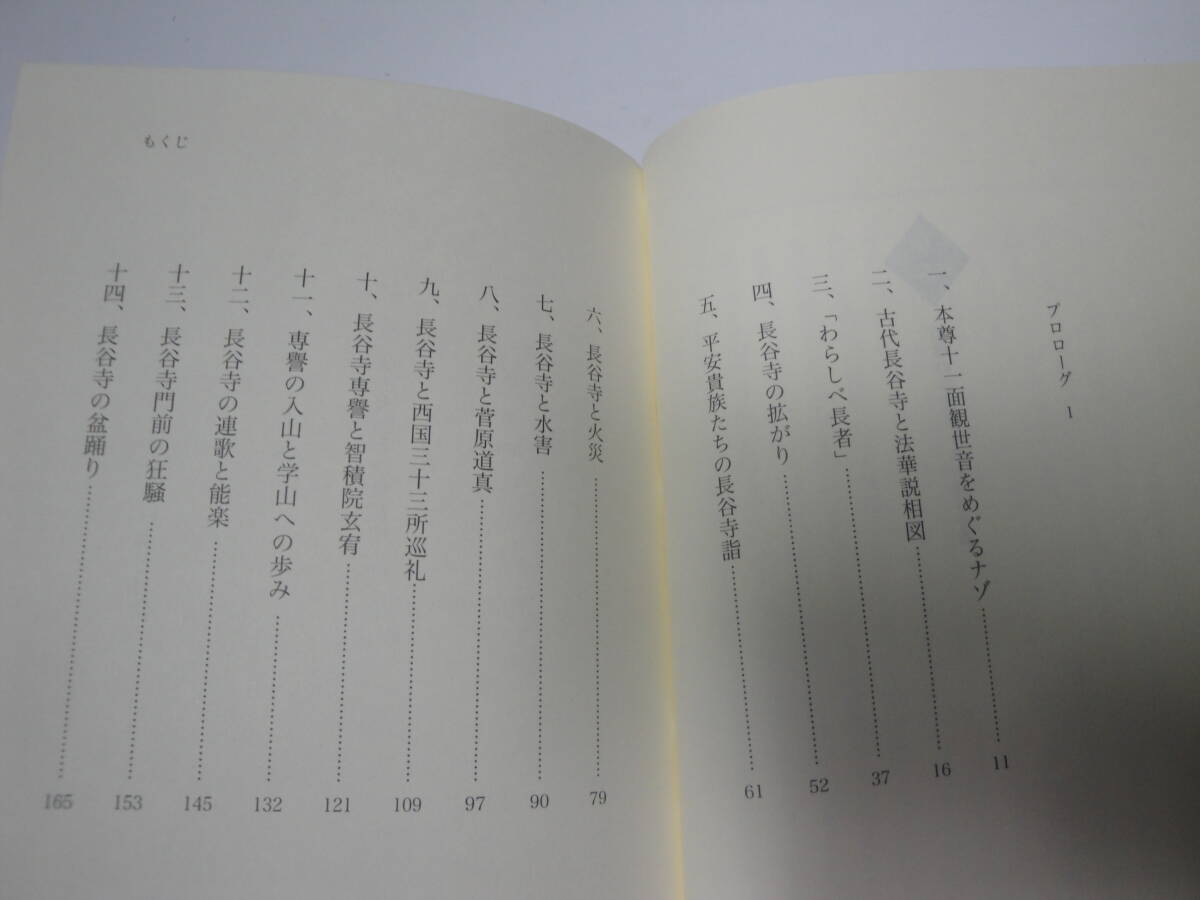 プロローグ 1
一、本尊十一面観世音をめぐるナゾ……………… 11
二、古代長谷寺と法華説相図……………… 16
三、「わらしべ長者」……………… 37
四、長谷寺の拡がり……………… 52
五、平安貴族たちの長谷寺詣……………… 61
もくじ
六、長谷寺と火災……………… 79
七、長谷寺と水害……………… 90
八、長谷寺と菅原道真……………… 97
九、長谷寺と西国三十三所巡礼……………… 109
十、長谷寺専誉と智積院玄宥……………… 121
十一、専譽の入山と学山への歩み……………… 132
十二、長谷寺の連歌と能楽……………… 145
十三、長谷寺門前の狂騒……………… 153
十四、長谷寺の盆踊り……………… 165